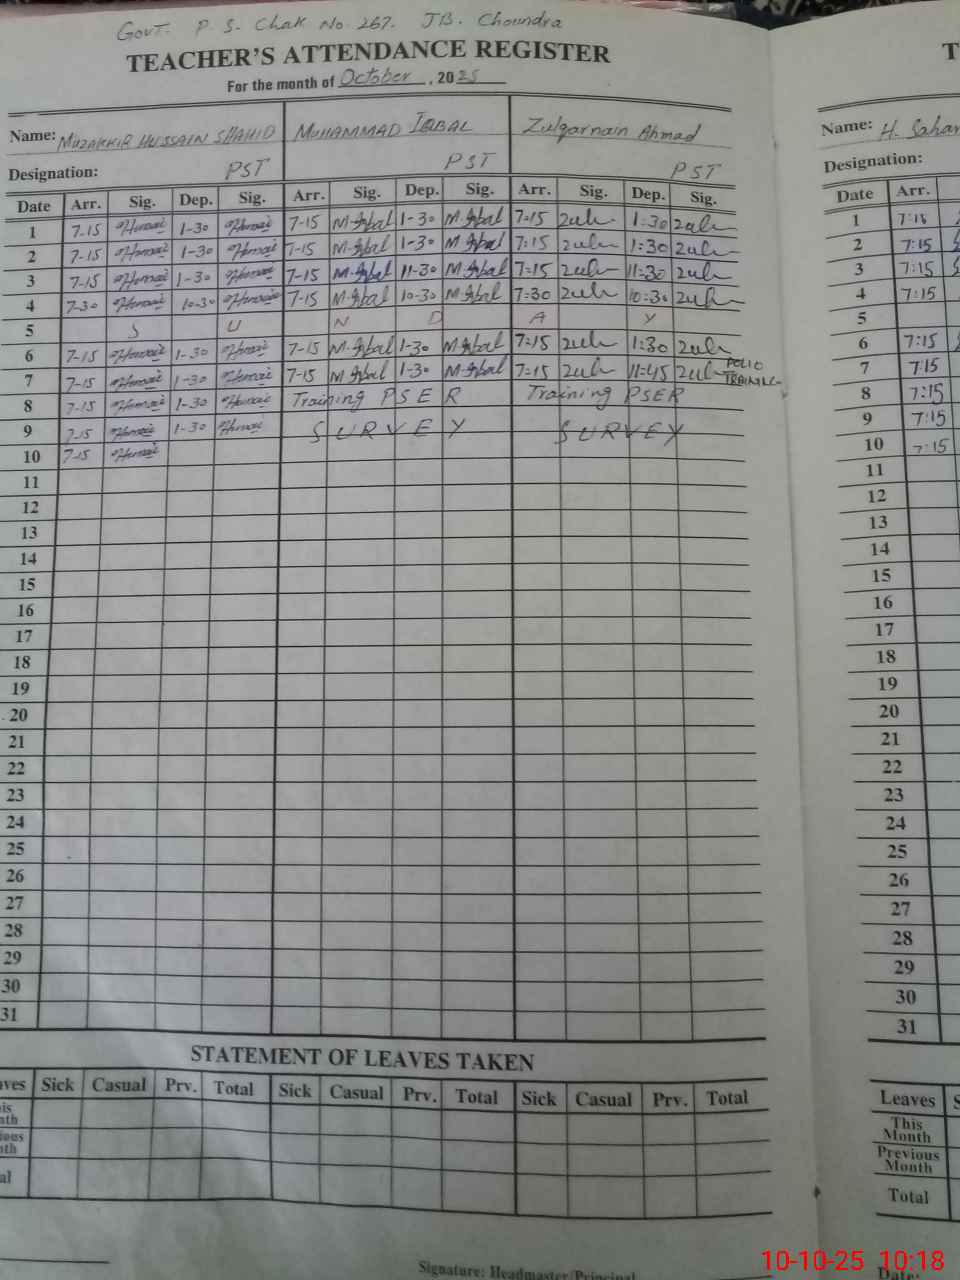 Govt. P. S. Chak No. 267. JB. Choundra
TEACHER'S ATTENDANCE REGISTER
For the month of October, 2025
Name: MUZAKKIR HUSSAIN SHAHID MUHAMMAD IQBAL Zulqarnain Ahmad
Designation: PST PST PST
Date Arr. Sig. Dep. Sig. Arr. Sig. Dep. Sig. Arr. Sig. Dep. Sig.
1 7-15 1-30 7-15 M.Iqbal 1-30 M.Iqbal 7:15 zulu 1:30 zulu
2 7-15 1-30 7-15 M.Iqbal 1-30 M.Iqbal 7:15 zulu 1:30 zulu
3 7-15 1-30 7-15 M.Iqbal 11-30 M.Iqbal 7:15 zulu 11:30 zulu
4 7-30 10-30 7-15 M.Iqbal 10-30 M.Iqbal 7:30 zulu 10:30 zulu
5 S U N D A Y
6 7-15 1-30 7-15 M.Iqbal 1-30 M.Iqbal 7:15 zulu 1:30 zulu
7 7-15 1-30 7-15 M.Iqbal 1-30 M.Iqbal 7:15 zulu 11:45 zulu POLIO
8 7-15 1-30 Training PSER Training PSER
9 7-15 1-30 SURVEY SURVEY
10 7-15
11
12
13
14
15
16
17
18
19
20
21
22
23
24
25
26
27
28
29
30
31
STATEMENT OF LEAVES TAKEN
Sick Casual Prv. Total Sick Casual Prv. Total Sick Casual Prv. Total
Signature: Headmaster/Principal
T
Name: H.
Designation:
Date Arr.
1 7:15
2 7:15
3 7:15
4 7:15
5
6 7:15
7 7:15
8 7:15
9 7:15
10 7:15
11
12
13
14
15
16
17
18
19
20
21
22
23
24
25
26
27
28
29
30
31
Leaves S
This
Month
Previous
Month
Total
Date:
10-10-25 10:18